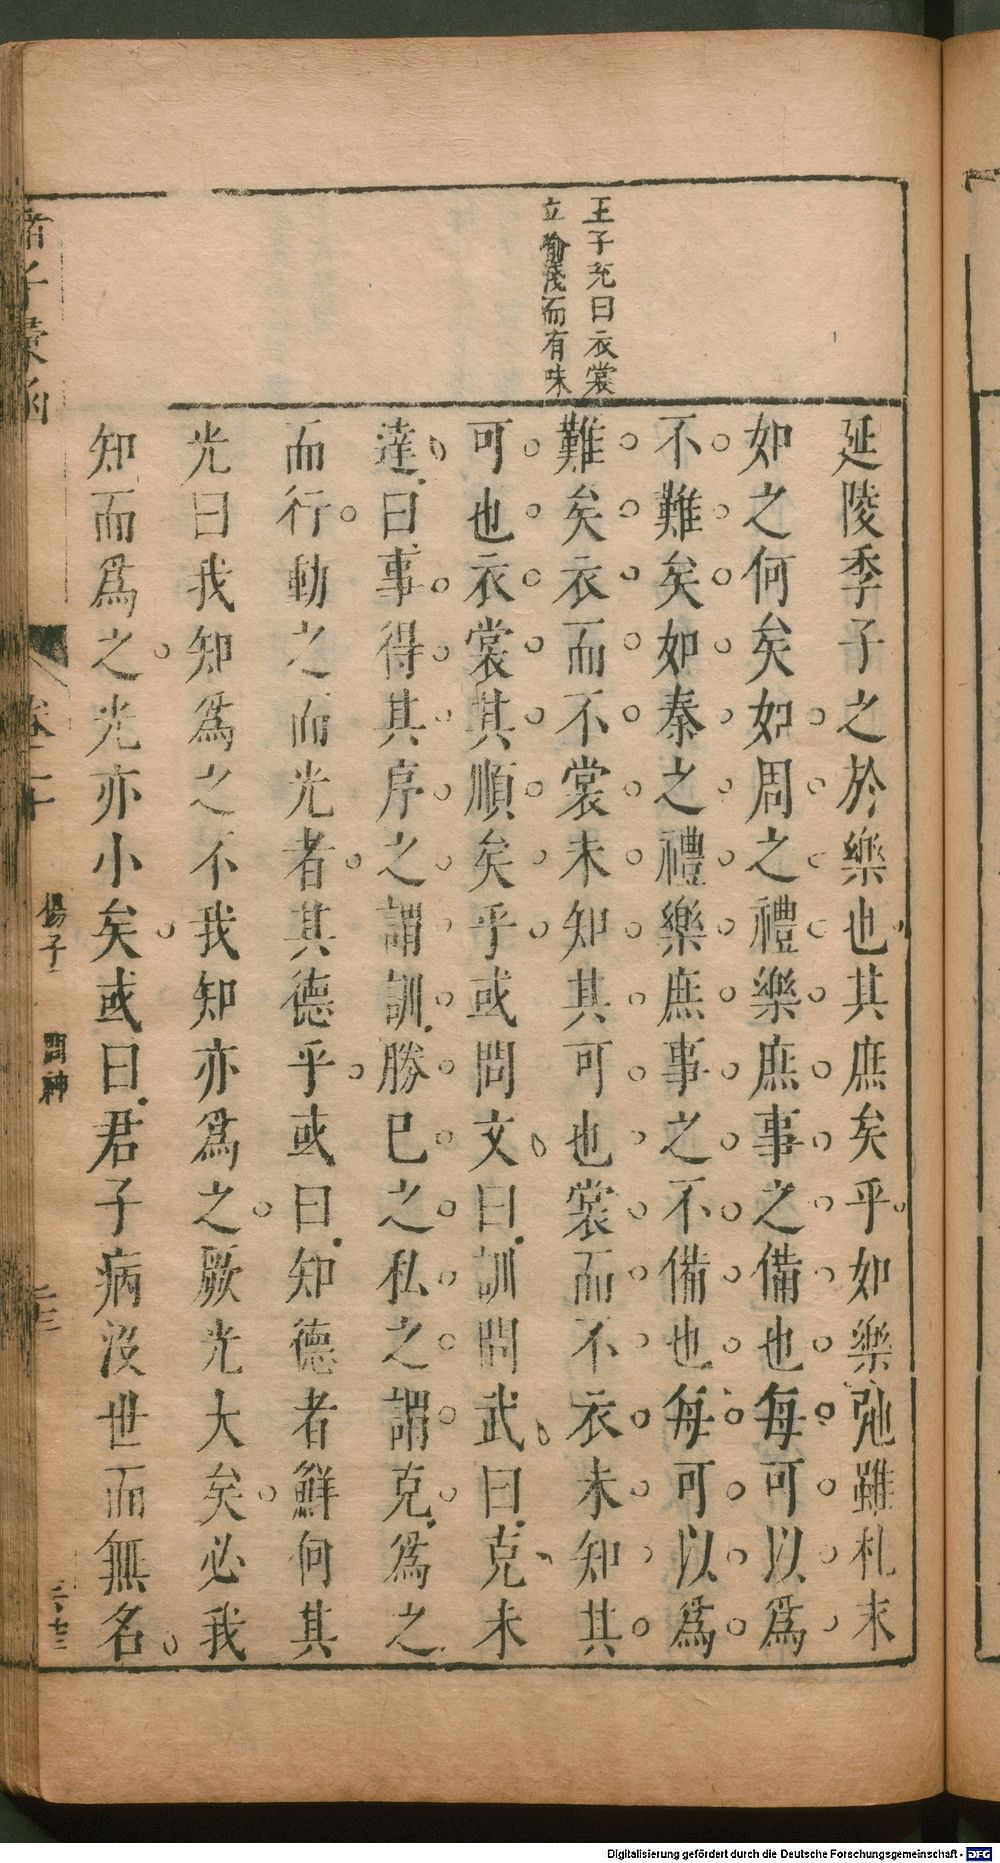 王子充曰衣裳
立喻淺而有味
延陵季子之於樂也其庶矣乎如樂弛雖札末
如之何矣如周之禮樂庶事之備也每可以爲
不難矣如秦之禮樂庶事之不備也每可以爲
難矣衣而不裳未知其可也裳而不衣未知其
可也衣裳其順矣乎或問文曰訓問武曰克未
達曰事得其序之謂訓勝已之私之謂克爲之
而行動之而光者其德乎或曰知德者鮮何其
光曰我知爲之不我知亦爲之厥光大矣必我
知而爲之光亦小矣或曰君子病沒世而無名
諸子彙函
卷二十
揚子
問神
二十三
Digitalisierung gefördert durch die Deutsche Forschungsgemeinschaft - DFG